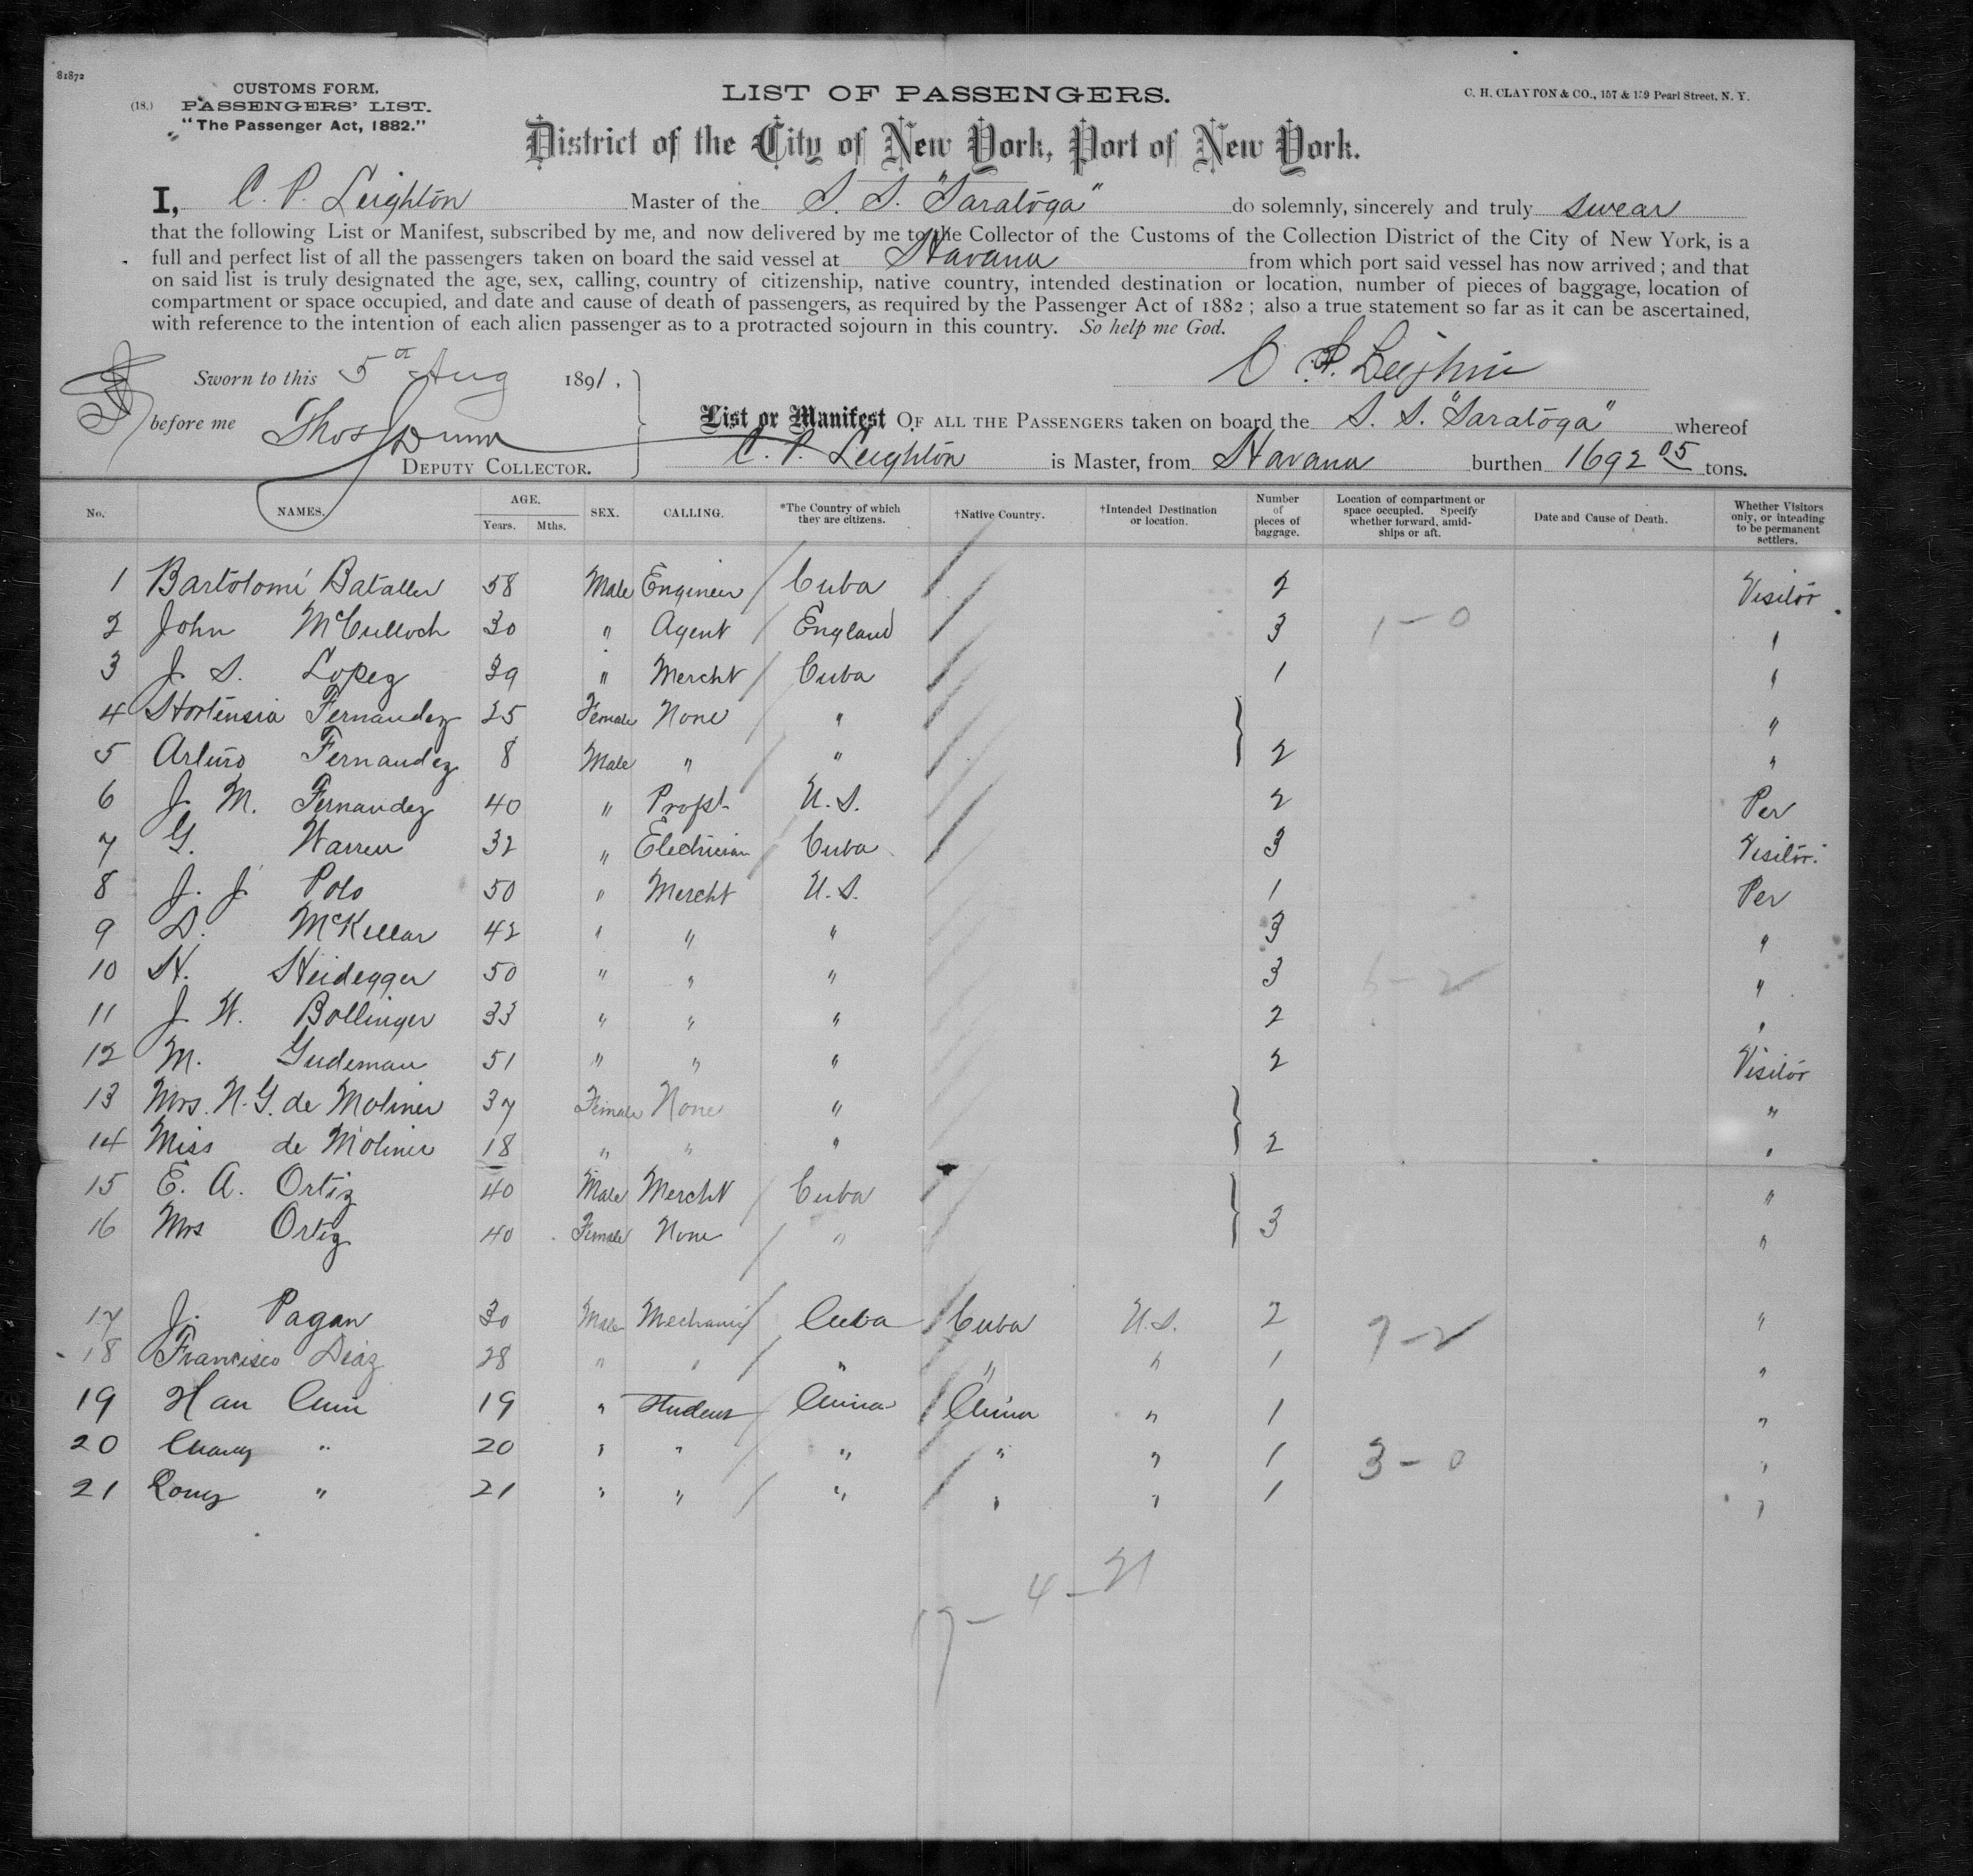 81872
CUSTOMS FORM.
(18.) PASSENGERS' LIST.
"The Passenger Act, 1882."
LIST OF PASSENGERS.
C. H. CLAYTON & CO., 157 & 159 Pearl Street, N. Y.
District of the City of New York, Port of New York.
I, C. P. Leighton Master of the S. S. "Saratoga" do solemnly, sincerely and truly swear
that the following List or Manifest, subscribed by me, and now delivered by me to the Collector of the Customs of the Collection District of the City of New York, is a
full and perfect list of all the passengers taken on board the said vessel at Havana from which port said vessel has now arrived; and that
on said list is truly designated the age, sex, calling, country of citizenship, native country, intended destination or location, number of pieces of baggage, location of
compartment or space occupied, and date and cause of death of passengers, as required by the Passenger Act of 1882; also a true statement so far as it can be ascertained,
with reference to the intention of each alien passenger as to a protracted sojourn in this country. So help me God.
Sworn to this 5th Aug 1891.
C. P. Leighton
before me Thos Dunn
DEPUTY COLLECTOR.
List or Manifest OF ALL THE PASSENGERS taken on board the S. S. "Saratoga" whereof
C. P. Leighton is Master, from Havana burthen 1692 05 tons.
No. NAMES. AGE. Years. Mths. SEX. CALLING. *The Country of which they are citizens. †Native Country. †Intended Destination or location. Number of pieces of baggage. Location of compartment or space occupied. Specify whether forward, amidships or aft. Date and Cause of Death. Whether Visitors only, or intending to be permanent settlers.
1 Bartolomé Bataller 58 Male Engineer Cuba 2 Visitor
2 John McCulloch 30 " Agent England 3 1-0 "
3 J. S. Lopez 39 " Mercht Cuba 1 "
4 Hortensia Fernandez 25 Female None " "
5 Arturo Fernandez 8 Male " " 2 "
6 J. M. Fernandez 40 " Propt U. S. 2 Per
7 G. Warren 32 " Electrician Cuba 3 Visitor
8 J. J. Polo 50 " Mercht U. S. 1 Per
9 D. McKellar 42 " " " 3 "
10 H. Heidegger 50 " " " 3 "
11 J. W. Bollinger 33 " " " 2 "
12 M. Gudeman 51 " " " 2 Visitor
13 Mrs. N. G. de Moliner 37 Female None " "
14 Miss de Moliner 18 " " " 2 "
15 E. A. Ortiz 40 Male Mercht Cuba "
16 Mrs Ortiz 40 Female None " 3 "
17 J. Pagan 30 Male Mechanic Cuba Cuba U.S. 2 7-2 "
18 Francisco Diaz 28 " " " " " 1 "
19 Hau 19 " Student China China " 1 "
20 " 20 " " " " " 1 3-0 "
21 " 21 " " " " " 1 "
17-4-21